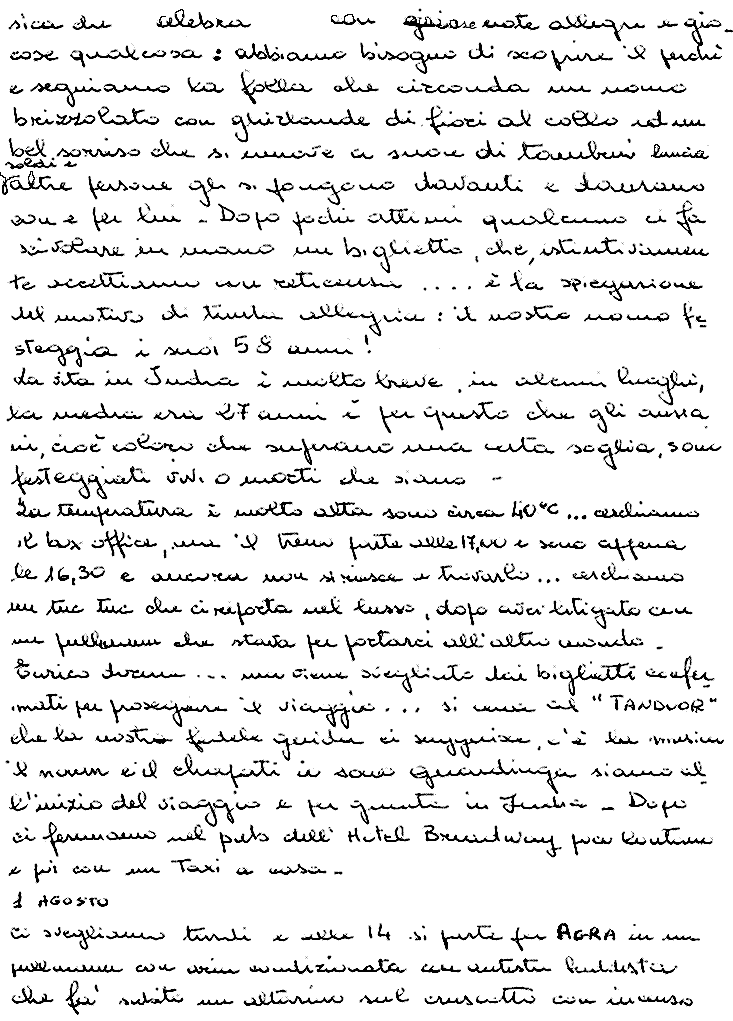 sica che celebra con gioiose note allegre e gio-
cose qualcosa : abbiamo bisogno di scoprire il perché
e seguiamo la folla che circonda un uomo
brizzolato con ghirlande di fiori al collo ed un
bel sorriso che si muove a suon di tamburi lancia
soldi e
altre persone gli si pongono davanti e danzano
con e per lui - Dopo pochi attimi qualcuno ci fa
scivolare in mano un biglietto, che, istintivamen
te accettiamo con reticenza .... è la spiegazione
del motivo di tanta allegria : il nostro uomo fe-
steggia i suoi 58 anni !
La vita in India è molto breve, in alcuni luoghi,
la media era 27 anni è per questo che gli anzia
ni, cioè coloro che superano una certa soglia, sono
festeggiati vivi o morti che siano -
La temperatura è molto alta sono circa 40°C ... cerchiamo
il box office, ma il treno parte alle 17,00 e sono appena
le 16,30 e ancora non si riesce a trovarlo ... cerchiamo
un tuc tuc che ci riporta nel lusso, dopo aver litigato con
un pullman che stava per portarci all'altro mondo -
Enrico dorme ... ma viene svegliato dai biglietti confer-
mati per proseguire il viaggio ... si cena al "TANDOOR"
che la nostra fedele guida ci suggerisce, c'è la musica
il naan e il chapati io sono guardinga siamo al-
l'inizio del viaggio e per giunta in India - Dopo
ci fermiamo nel pub dell'Hotel Broadway poco lontano
e poi con un Taxi a casa -
1 AGOSTO
ci svegliamo tardi e alle 14 si parte per AGRA in un
pullman con aria condizionata con autista buddista
che fa' subito un altarino sul cruscotto con incenso